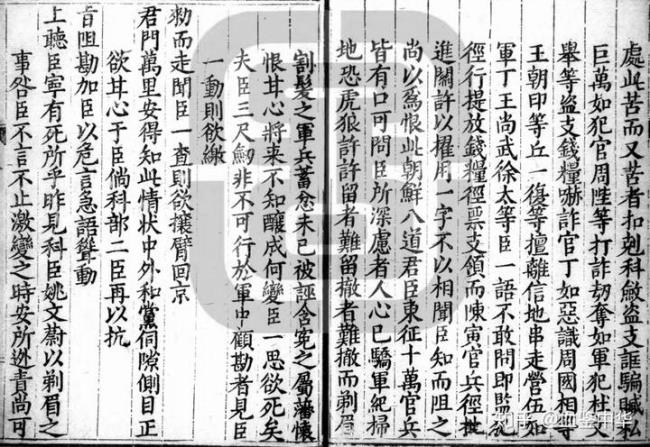 處此苦而又苦者扣剋科斂盗支誆騙贓私
巨萬如犯官周陞等打詐刼奪如軍犯杜文
舉等盗支錢糧嚇詐官丁如惡識周國相
王朝印等丘一復等擅離信地串走營伍如
軍丁王尚武徐太等臣一語不敢問即監犯
徑行提放錢糧徑票支領而陳寅官兵徑批
進關許以擢用一字不以相聞臣知而阻之
尚以爲恨此朝鮮八道君臣東征十萬官兵
皆有口可問臣所深慮者人心已驕軍紀掃
地恐虎狼許許留者難留撤者難撤而剃眉
割髮之軍兵蓄忿未已被誣含寃之屬藩懷
恨甘心將来不知釀成何變臣一思欲死矣
夫臣三尺劒非不可行於軍中顧勘者見臣
一動則欲繳
勑而走聞臣一查則欲攘臂回京
君門萬里安得知此情狀中外和黨伺隙側目正
欲甘心于臣倘科部二臣再以抗
旨阻勘加臣以危言急語聳動
上聽臣寧有死所乎昨見科臣姚文蔚以剃眉之
事咎臣不言不止激變之時安所逃責尚可